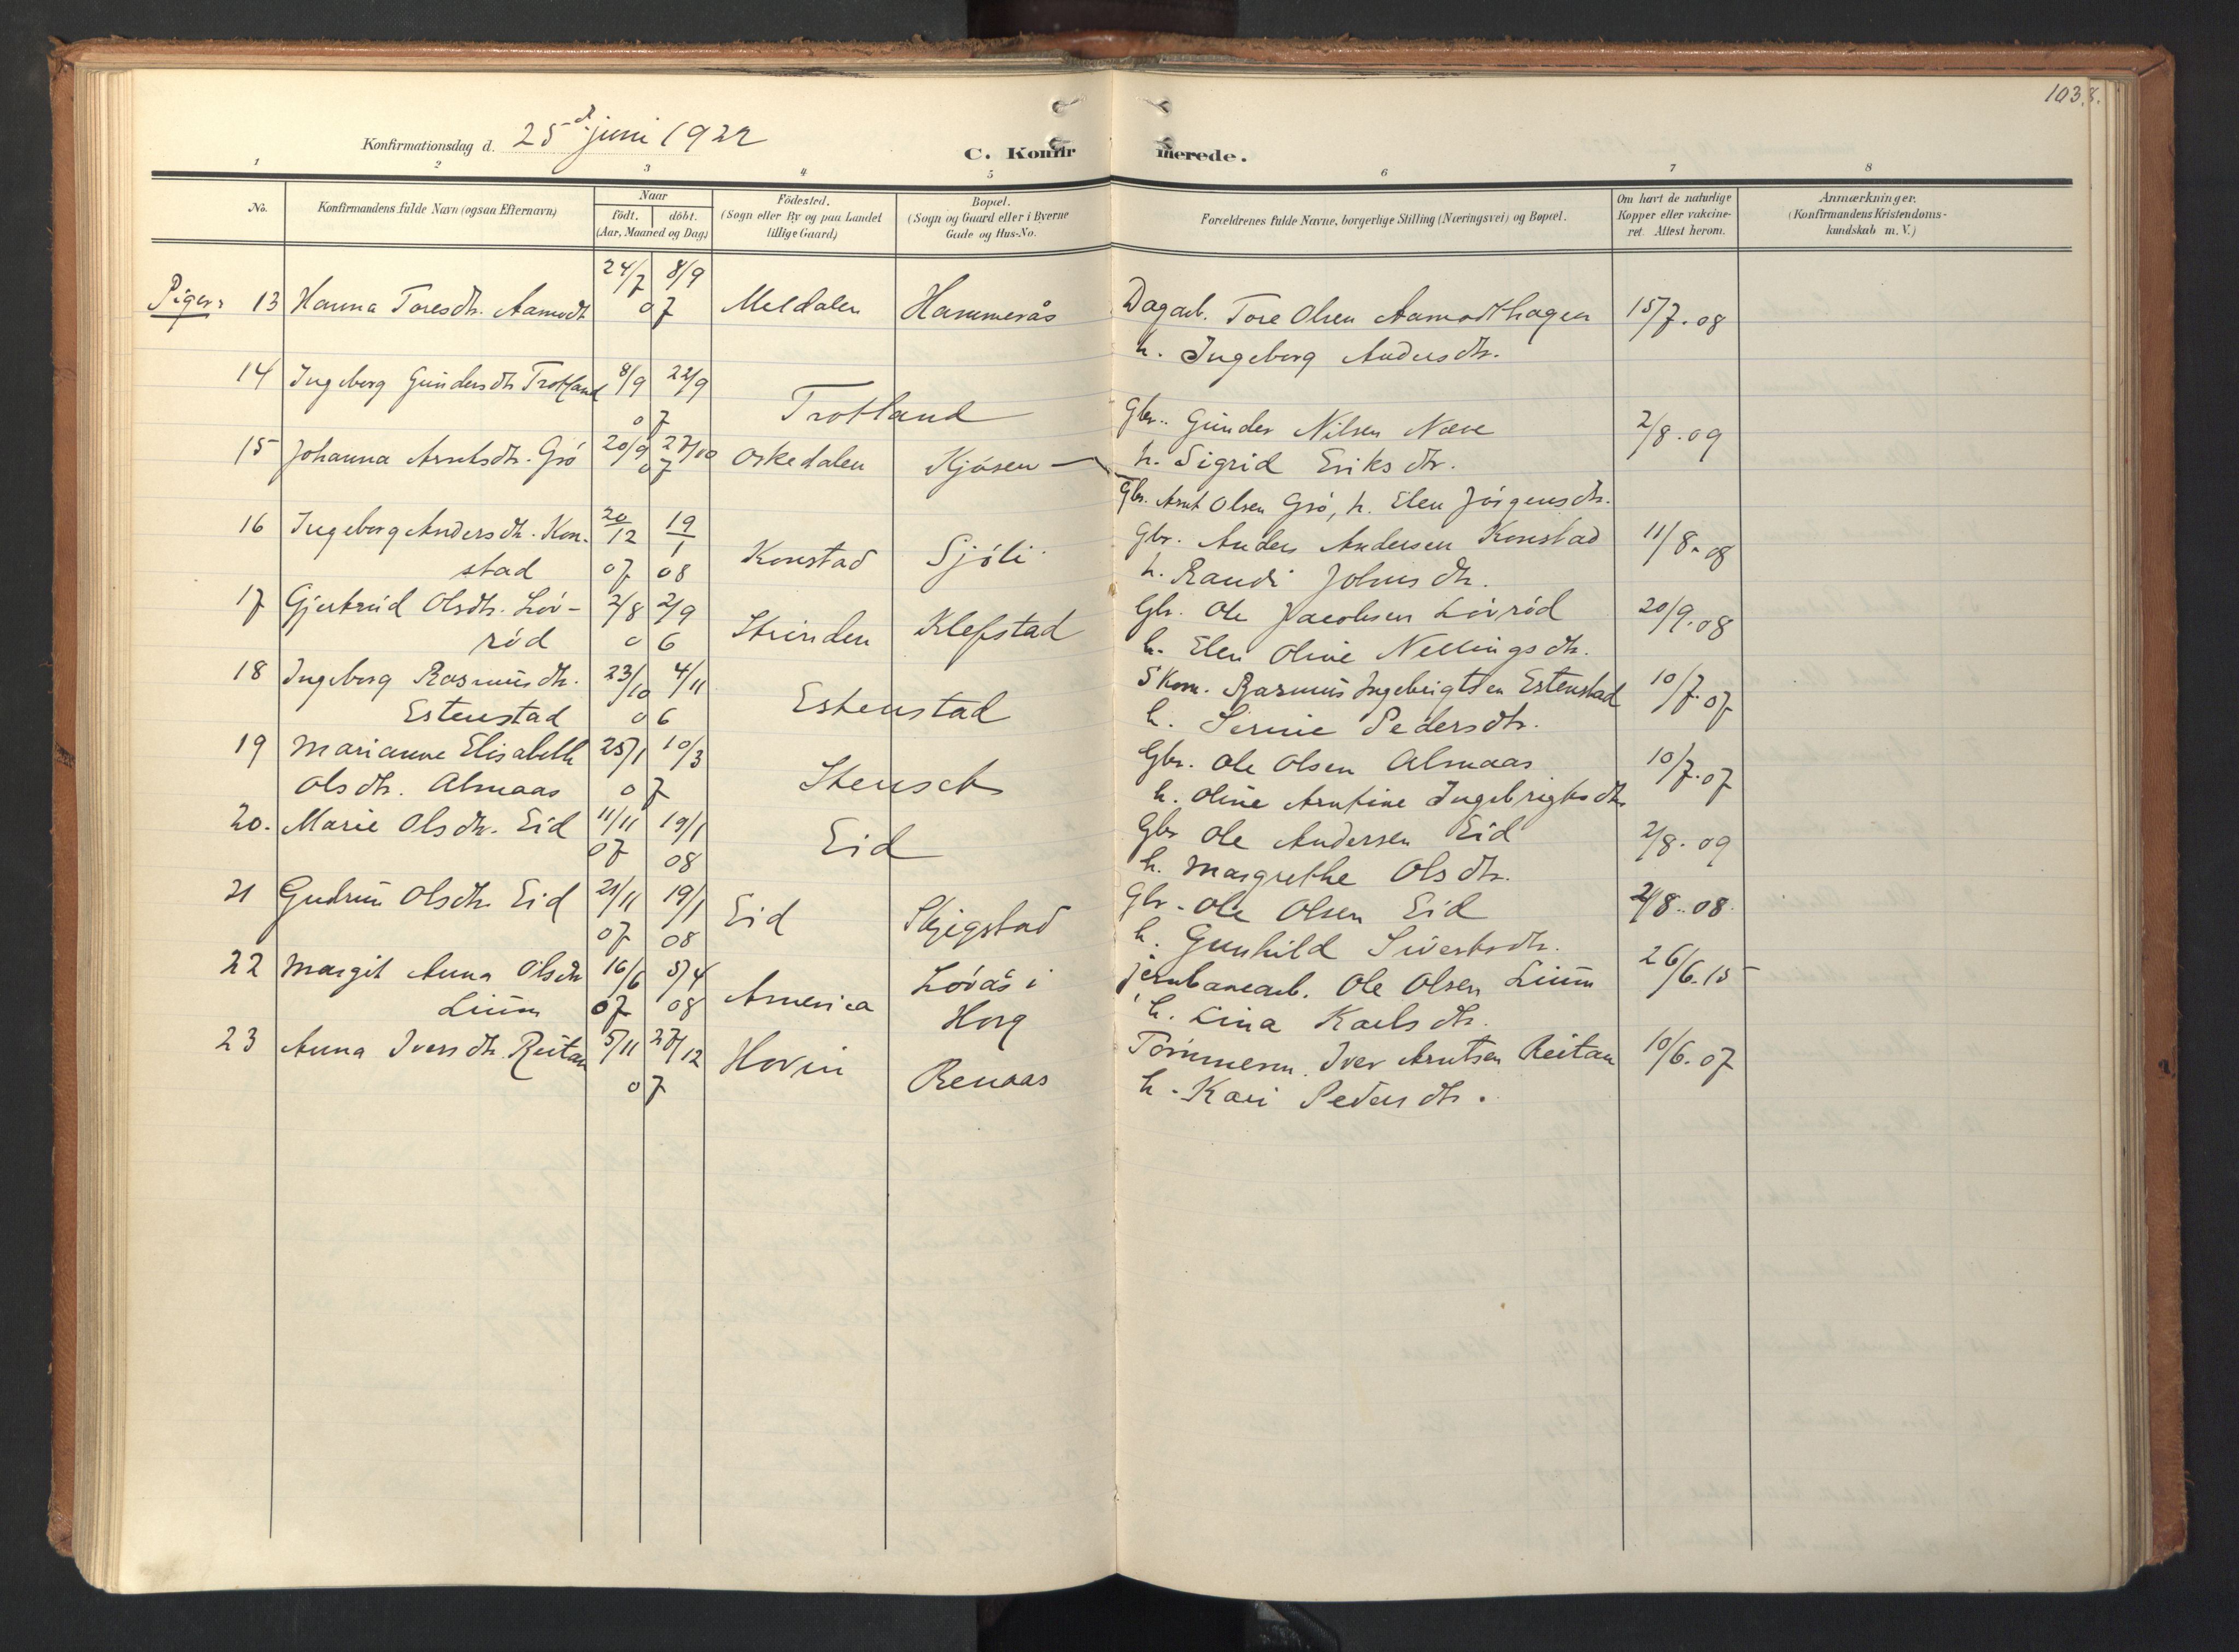 103.
8.
Konfirmationsdag d. 25d juni 1922
C. Konfirmerede.
1 2 3 4 5 6 7 8
No.
Konfirmandens fulde Navn (ogsaa Efternavn)
Naar
födt. döbt.
(Aar, Maaned og Dag)
Födested.
(Sogn eller By og paa Landet
tillige Gaard)
Bopæl.
(Sogn og Gaard eller i Byerne
Gade og Hus-No.
Forældrenes fulde Navne, borgerlige Stilling (Næringsvei) og Bopæl.
Om havt de naturlige
Kopper eller vakcine-
ret. Attest herom.
Anmærkninger.
(Konfirmandens Kristendoms-
kundskab m. V.)
24/7 8/9
Piger: 13 Hanna Toresdtr. Aamodt 07 Meldalen Hammerås Dagarb. Tore Olsen Aamodthagen 15/7.08
h. Ingeborg Andersdtr.
14 Ingeborg Gundersdtr Trotland 8/9 22/9
07 Trotland Gbr. Gunder Nilsen Næve 2/8.09
h. Sigrid Eriksdtr.
15 Johanna Arntsdtr. Grö 20/9 27/10 07 Oskedalen Kjösen
Gbr. Arnt Olsen Grö, h. Elen Jörgensdtr.
16 Ingeborg Andersdtr. Kon- 20/12 19/1
stad 07 08 Konstad Sjöli Gbr. Anders Andersen Konstad 11/8.08
h. Randi Johnsdtr.
17 Gjertrud Olsdtr. Löv- 2/8 2/9
röd 06 Strinden Klefstad Gbr. Ole Jacobsen Lövröd 20/9.08
h. Elen Oline Nellingsdtr.
18 Ingeborg Rasmusdtr. 23/10 4/11
Estenstad 06 Estenstad Skom. Rasmus Ingebrigtsen Estenstad 10/7.07
h. Serine Pedersdtr.
19 Marianne Elisabeth 25/1 10/3
Olsdtr. Almaas 07 Gbr. Ole Olsen Almaas 10/7.07
h. Oline Arntine Ingebrigtsdtr
20. Marie Olsdtr. Eid 11/11 19/1
07 08 Eid Gbr Ole Andersen Eid 2/8.09
h. Margrethe Olsdtr.
21 Gudrun Olsdtr Eid 21/11 19/1
07 08 Eid Skjegstad Gbr. Ole Olsen Eid 24/8.08.
h. Gunhild Sivertsdtr.
22 Margit Anna Olsdtr 16/6 5/4
Lium 07 08 America Lövås i
Horg jernbanearb. Ole Olsen Lium 26/6.15
h. Lina Karlsdtr.
23 Anna Iversdtr. Reitan 5/11 27/12
07 Hovin Renaas Tömmerm. Iver Arntsen Reitan 10/6.07
h. Kari Pedersdtr.